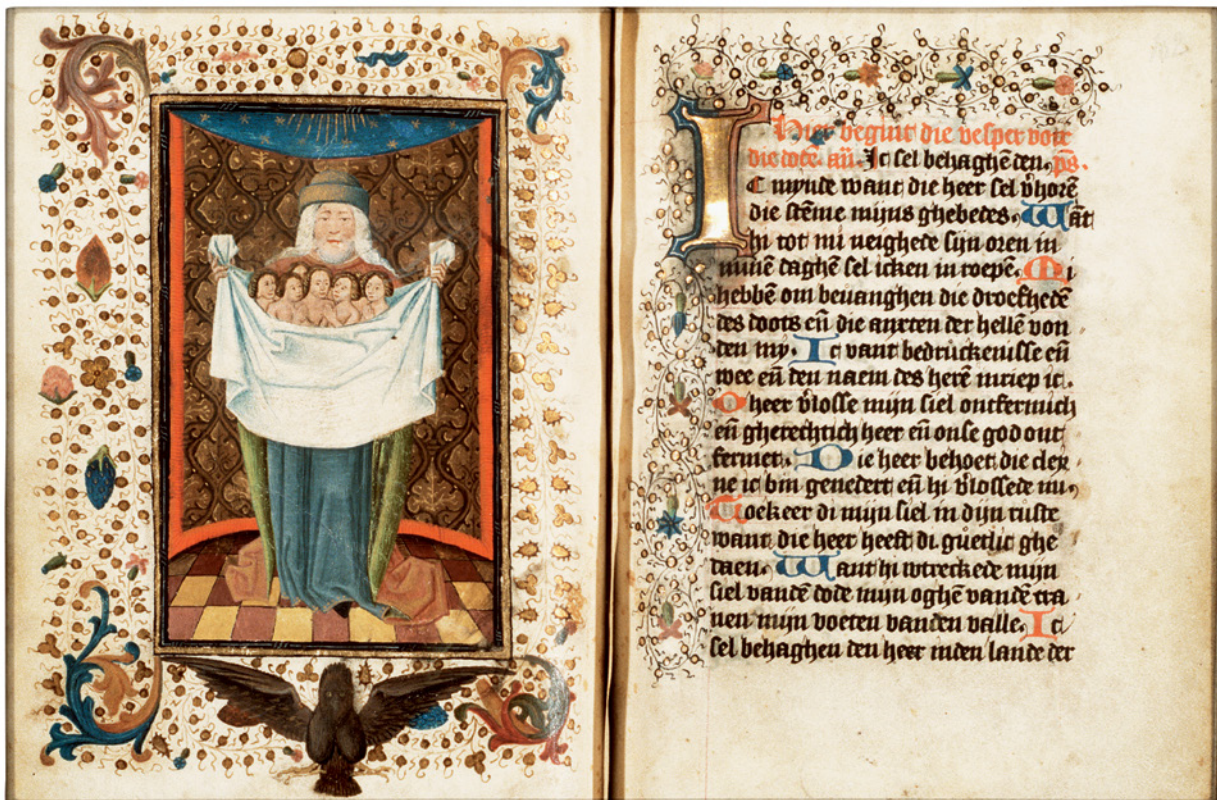 Hier begint die vesper voir
die dode. añ. Ic sel behaghē den. ps.
I C mynde want die heer sel v̄horē
die stēme mijns ghebedes. Wāt
hi tot mi neighede sijn oren in
minē daghē sel icken in roepē. Mi
hebbē om bevanghen die droefhedē
des doots eñ die anxten der hellē von
den my. Ic vant bedruckenisse eñ
wee eñ den naem des herē inriep ic.
O heer v̄losse mijn siel ontfermich
eñ gherechtich heer eñ onse god ont
fermet. Die heer behoet die cley
ne ic bin genedert eñ hi v̄lossede mi.
Toekeer di mijn siel in dijn ruste
want die heer heeft di guetlic ghe
daen. Want hi wtreckede mijn
siel vandē dode mijn oghē vandē tra
nen mijn voeten vanden valle. Ic
sel behaghen den heer inden lande der